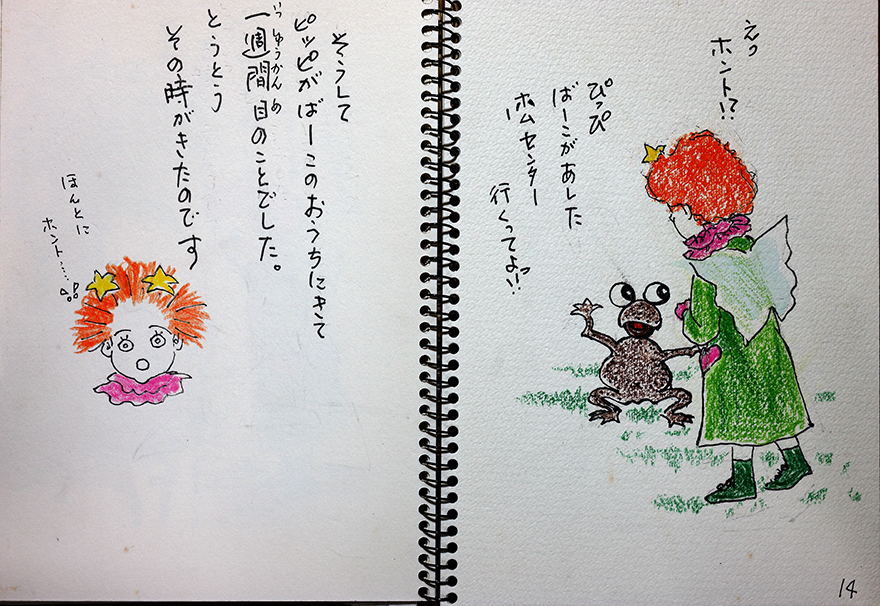 えっ
ホント!?
ぴっぴ
ばーこがあした
ホムセンター
行くってよっ!!
14
そうして
ピッピがばーこのおうちにきて
いっしゅうかんめ
一週間目のことでした。
とうとう
その時がきたのです
ほんとに
ホント……